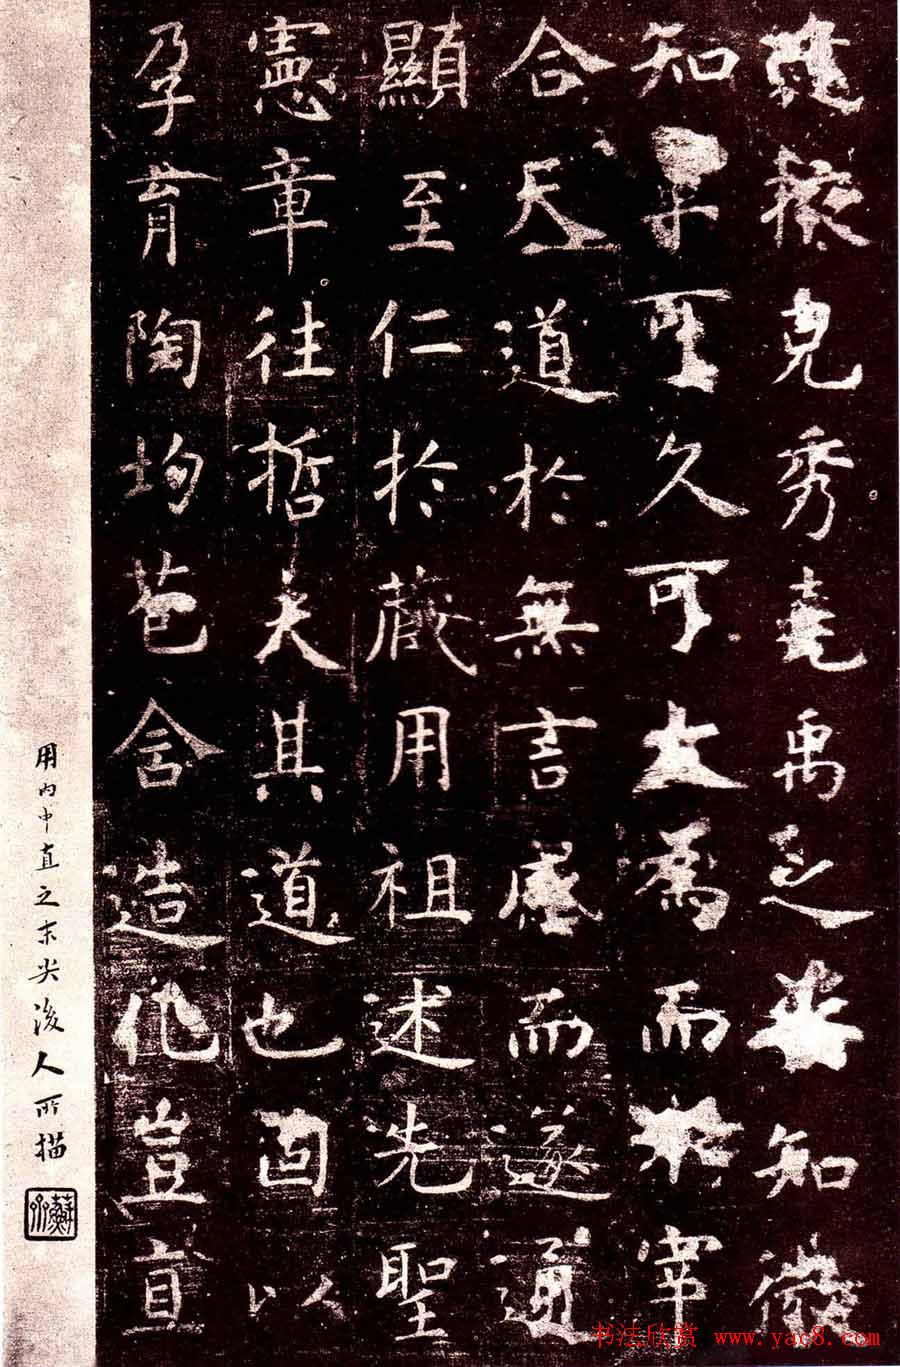 克秀堯禹之姿知微
知章可久可大為而不宰
合天道於無言感而遂通
顯至仁於藏用祖述先聖
憲章往哲夫其道也固以
孕育陶均苞含造化豈直
用内中直之末尖後人所描
书法欣赏 www.yac8.com